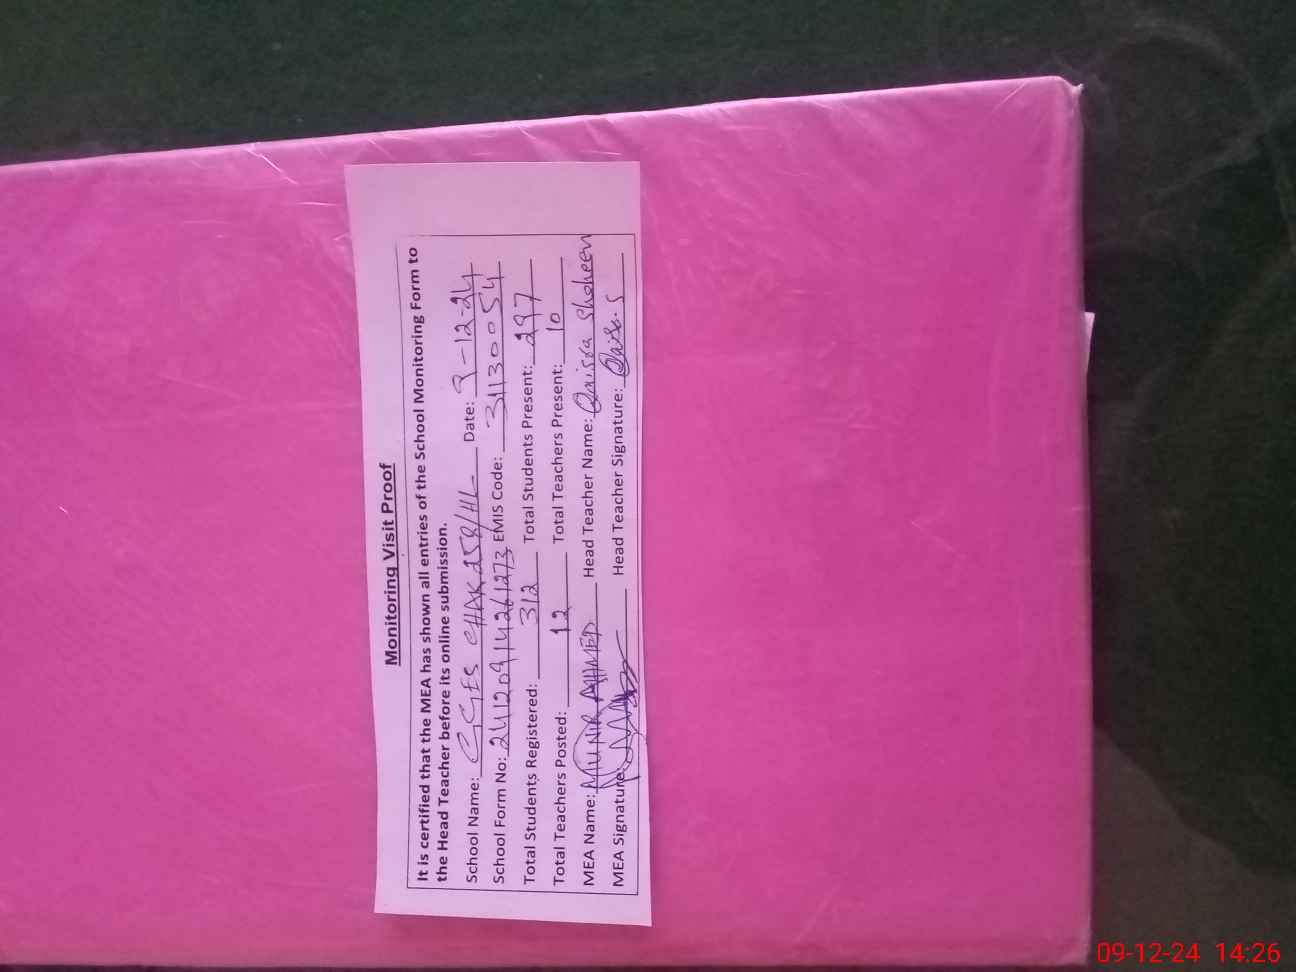 Monitoring Visit Proof
It is certified that the MEA has shown all entries of the School Monitoring Form to
the Head Teacher before its online submission.
School Name: GGES CHAK 258/HL Date: 9-12-24
School Form No: 24120914261273 EMIS Code: 31130054
Total Students Registered: 312 Total Students Present: 297
Total Teachers Posted: 12 Total Teachers Present: 10
MEA Name: MUNIR AHMED Head Teacher Name: Qaisra Shaheen
MEA Signature: Head Teacher Signature: Qais. S
09-12-24 14:26